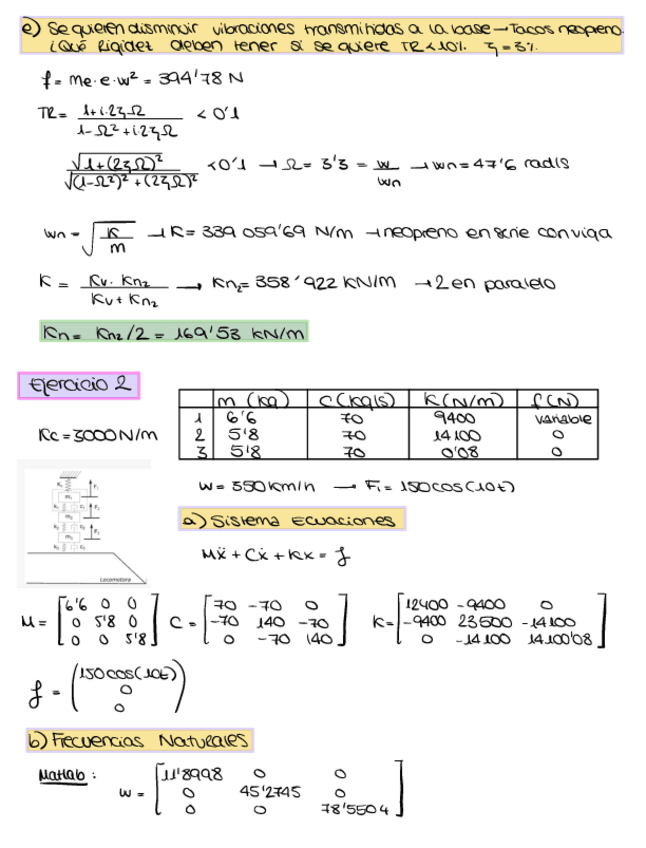 e) Se quieren disminuir vibraciones transmitidas a la base → Tacos neopreno.
¿Qué Rigidez deben tener si se quiere TR < 10%. ʒ = 3%
f = me · e · w² = 394'78 N
TR = (1 + i·2ʒΩ) / (1 - Ω² + i·2ʒΩ) < 0'1
√(1+(2ʒΩ)²) / √((1-Ω²)² + (2ʒΩ)²) < 0'1 → Ω = 3'3 = w/wn → wn = 47'6 rad/s
wn = √(K/m) → K = 339 059'69 N/m → neopreno en serie con viga
K = (Kv · Kn2) / (Kv + Kn2) → Kn2 = 358'922 KN/m → 2 en paralelo
Kn = Kn2/2 = 169'53 kN/m
Ejercicio 2
m (kg) C (kg/s) K (N/m) f (N)
1 6'6 70 9400 variable
2 5'8 70 14100 0
3 5'8 70 0'08 0
Kc = 3000 N/m
w = 350 km/h → F1 = 150 cos(10t)
a) Sistema Ecuaciones
Mẍ + Cẋ + Kx = f
Locomotora
M = [6'6 0 0 C = [70 -70 0 K = [12400 -9400 0
0 5'8 0 -70 140 -70 -9400 23500 -14100
0 0 5'8] 0 -70 140] 0 -14100 14.100'08]
f = (150 cos(10t)
0
0)
b) Frecuencias Naturales
Matlab: w = [11'8998 0 0
0 45'2745 0
0 0 78'5504]